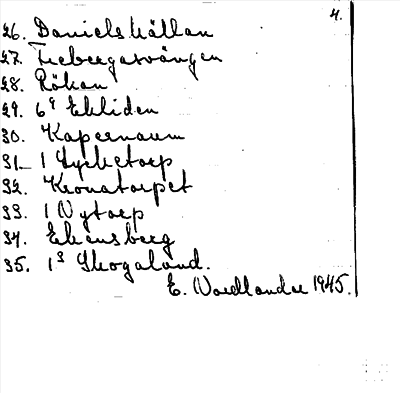 4.
26. Danielskällan
27. Trebergasvängen
28. Rökan
29. 6⁹ Ekliden
30. Kapernaum
31. 1 Lycketorp
32. Kronatorpet
33. 1 Nytorp
34. Ekensberg
35. 1³ Skogalund.
E. Nordlander 1945.